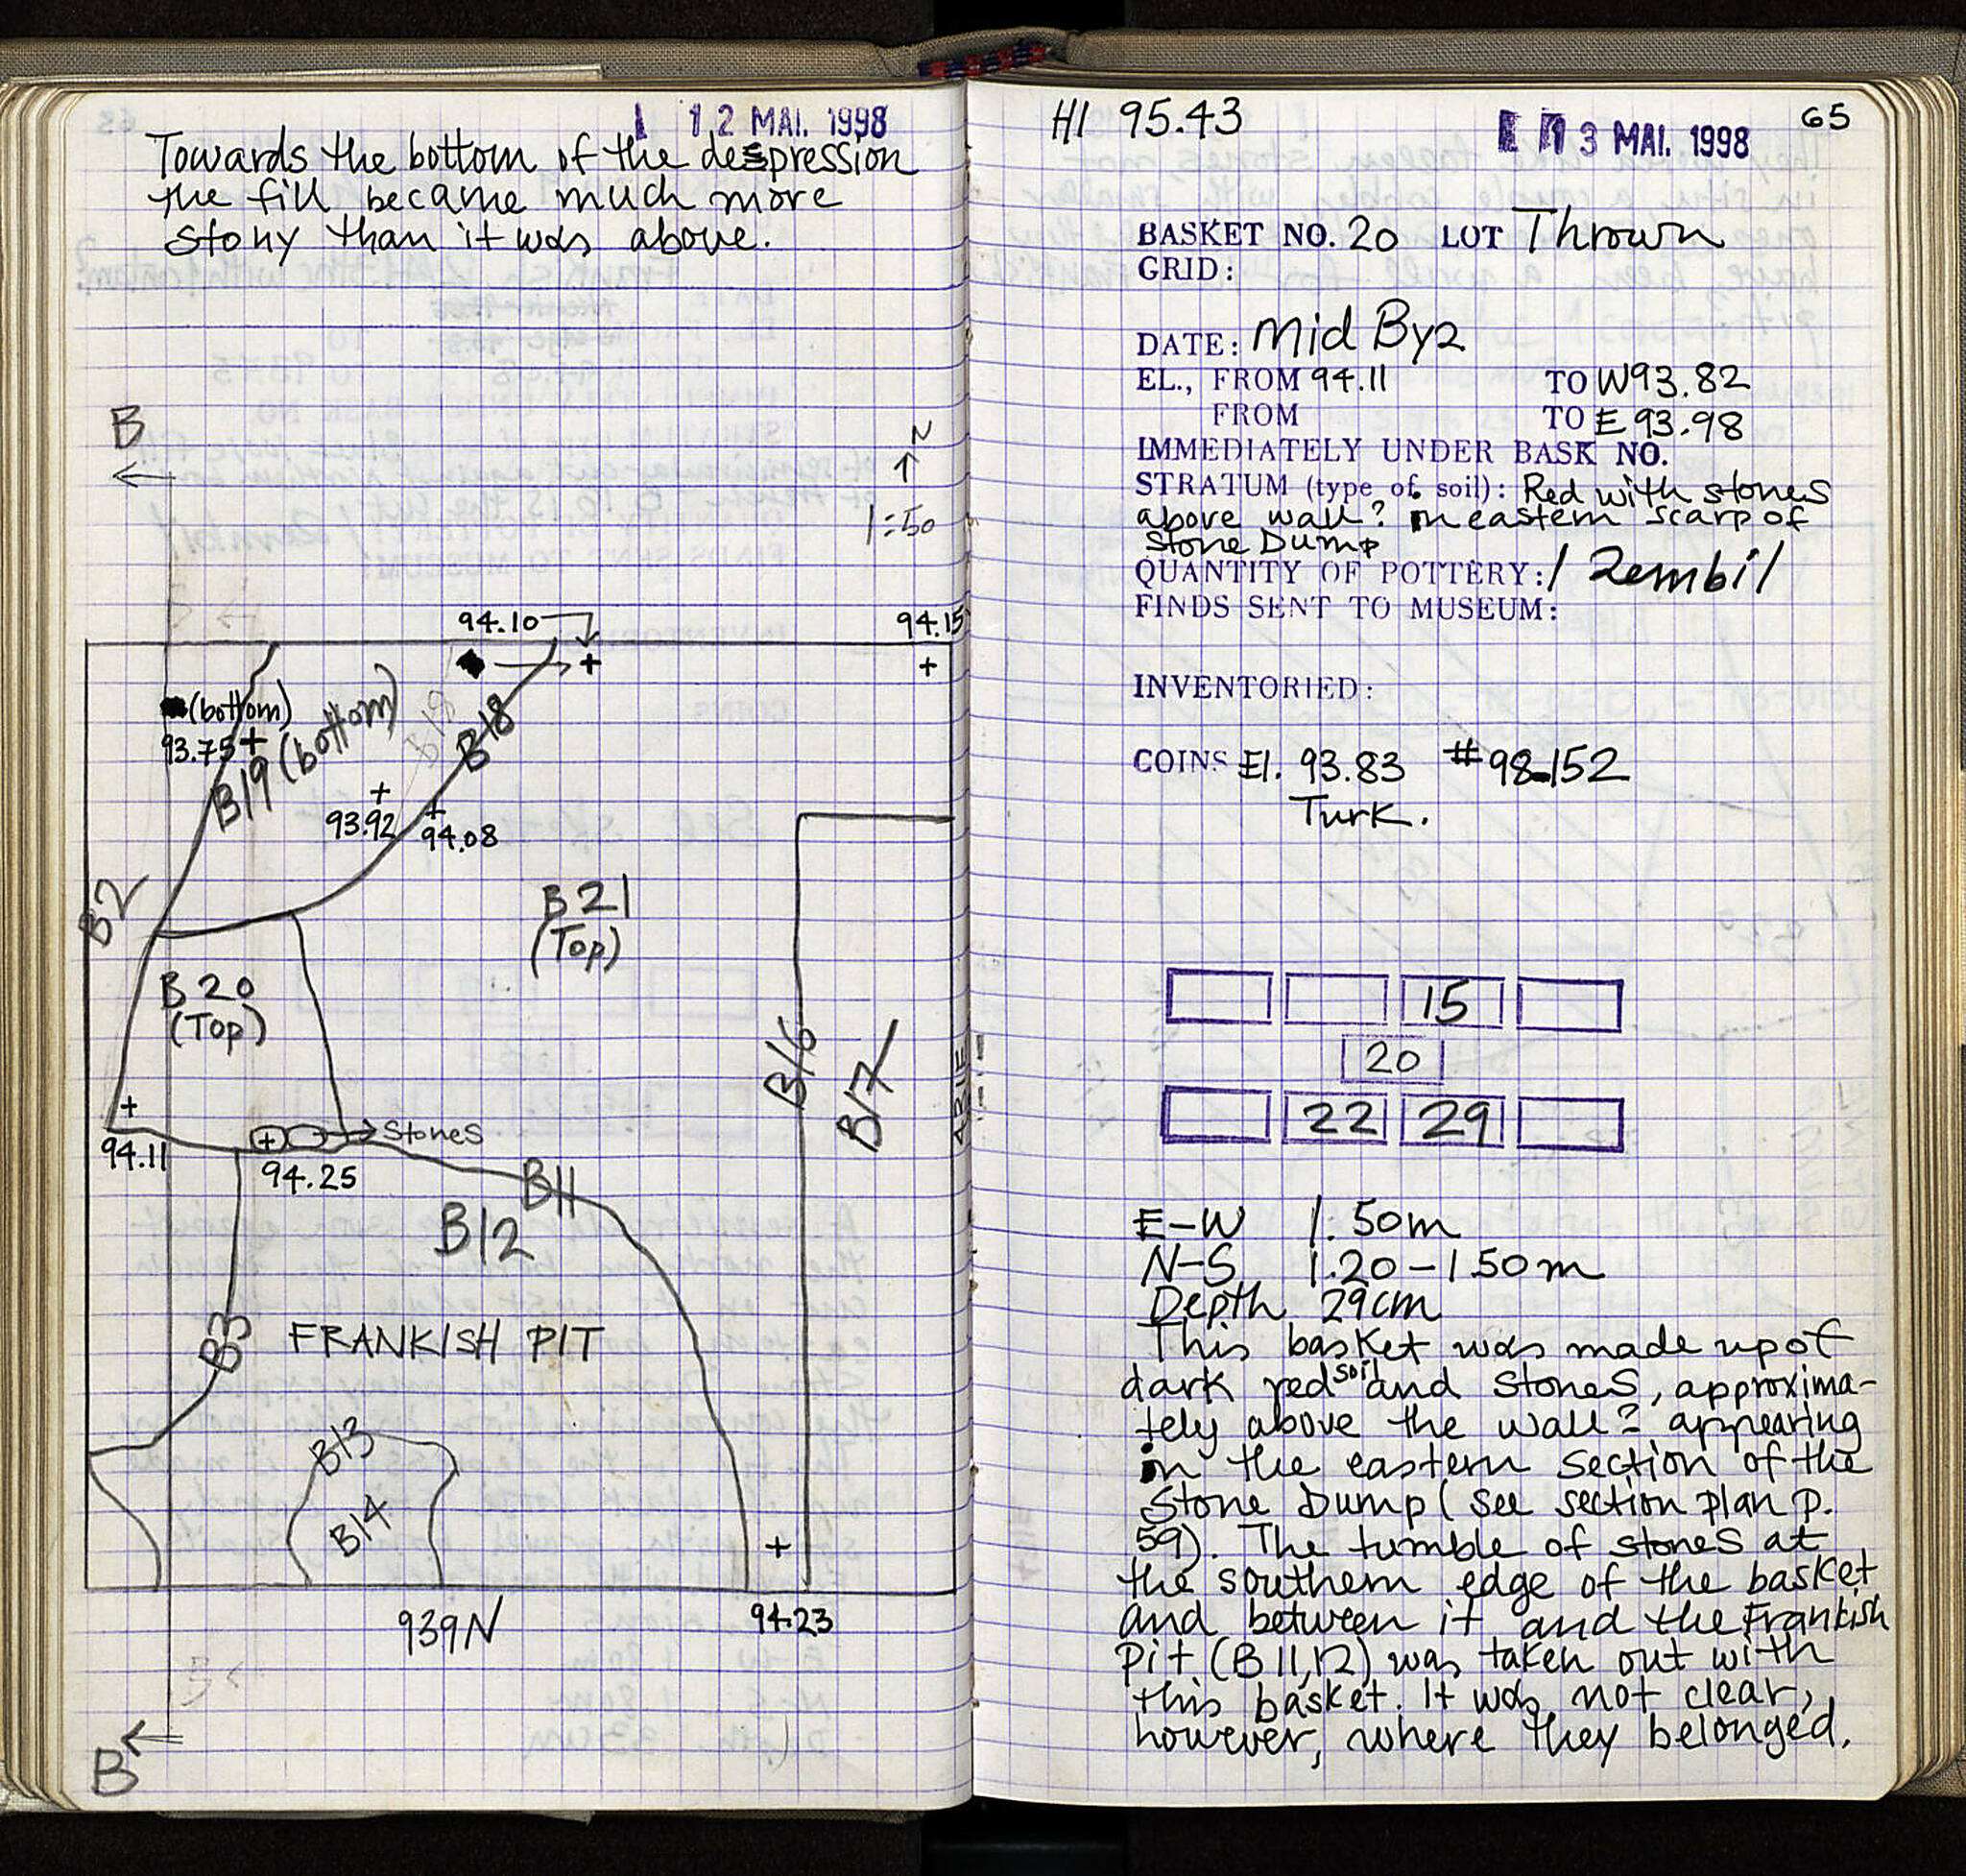 1 2 MAI. 1998
Towards the bottom of the despression
the fill became much more
stony than it was above.
B
N
1:50
94.10
94.15
(bottom)
93.75
B19 (bottom)
B19
B18
93.92
94.08
B2
B21
(Top)
B20
(Top)
B16
B17
94.11
Stones
94.25
B11
B12
B3
FRANKISH PIT
B13
B14
939N
94.23
B
HI 95.43
1 3 MAI. 1998
65
BASKET NO. 20 LOT Thrown
GRID:
DATE: Mid By2
EL., FROM 94.11 TO W93.82
FROM TO E 93.98
IMMEDIATELY UNDER BASK NO.
STRATUM (type of soil): Red with stones
above wall? in eastern scarp of
Stone Dump
QUANTITY OF POTTERY: 1 Zembil
FINDS SENT TO MUSEUM:
INVENTORIED:
COINS El. 93.83 #98-152
Turk.
15
20
22 29
E-W 1.50m
N-S 1.20-1.50m
Depth 29cm
This basket was made up of
dark red soil and stones, approxima-
tely above the wall? appearing
in the eastern section of the
Stone Dump (see section plan p.
59). The tumble of stones at
the southern edge of the basket
and between it and the Frankish
Pit (B11,12) was taken out with
this basket. It was not clear,
however, where they belonged.